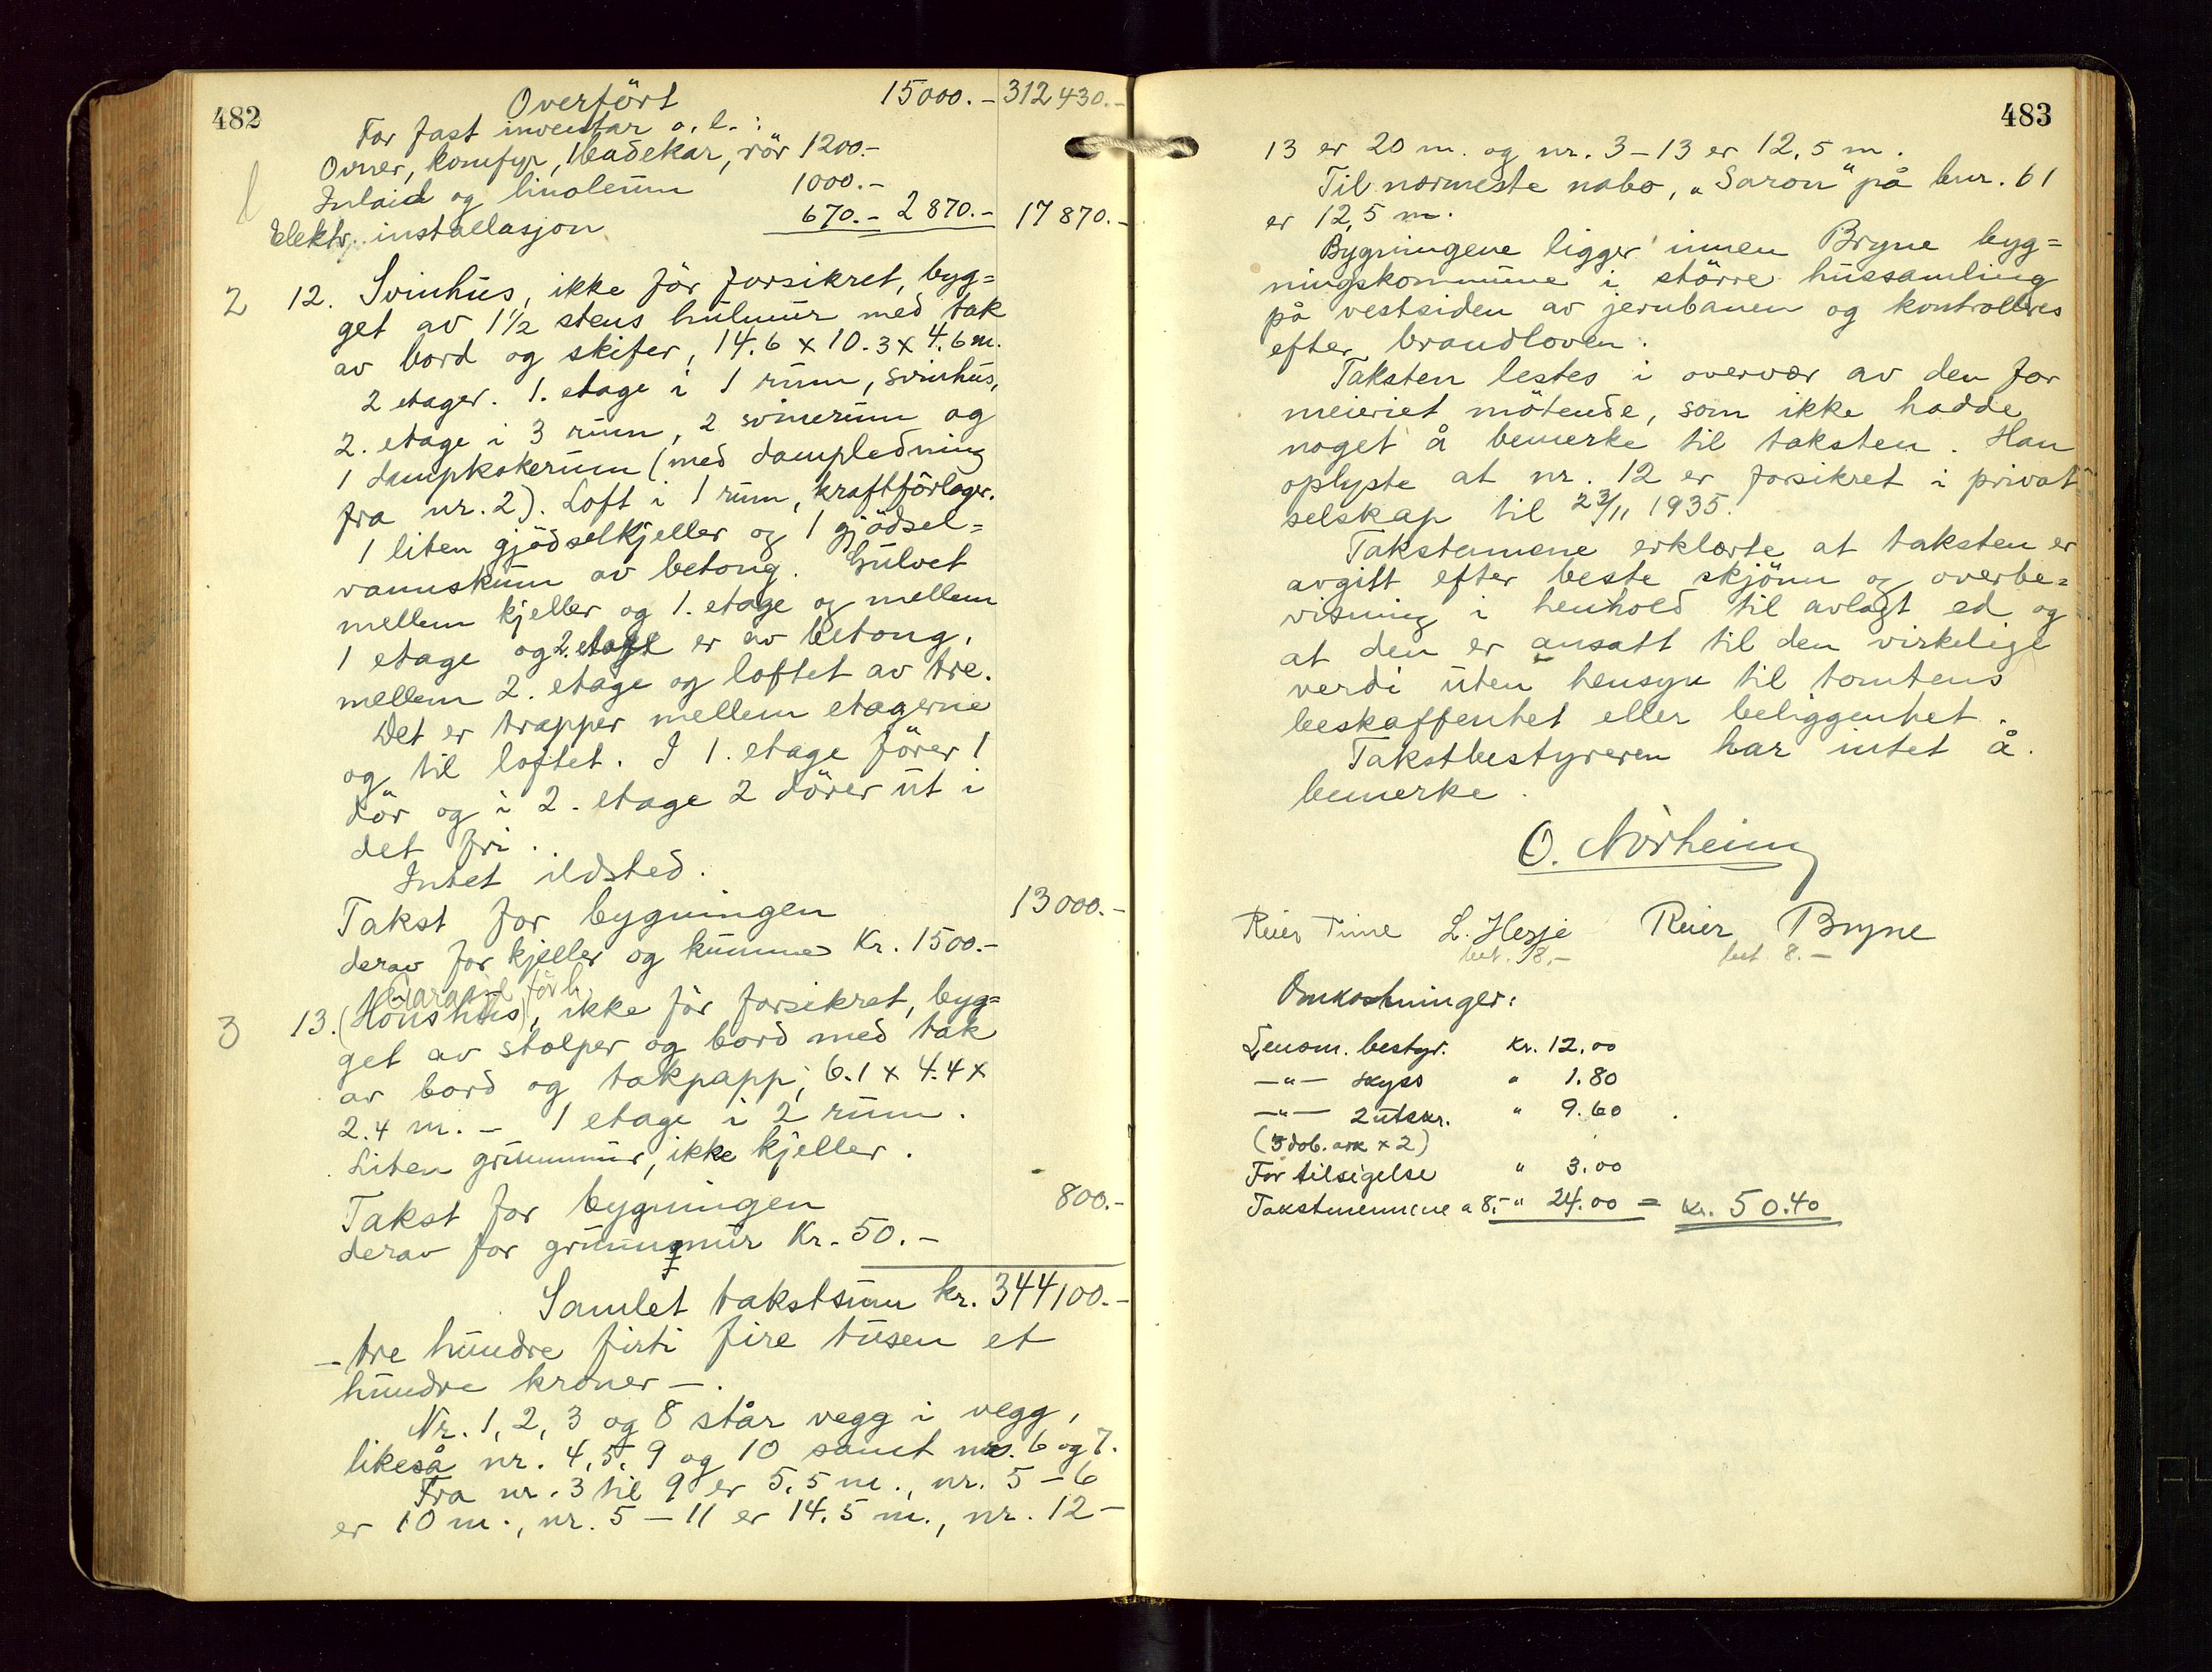 482
Overført 15000.- 312430.-
For fast inventar o.l.:
Ovner, komfyr, 1 badekar, rör 1200.-
Inlaid og linoleum 1000.-
Elektr. installasjon 670.- 2870.- 17870.-
2 12. Svinhus, ikke för forsikret, byg=
get av 1½ stens hulmur med tak
av bord og skifer, 14.6 x 10.3 x 4.6 m.
2 etager. 1. etage i 1 rum, svinhus,
2. etage i 3 rum, 2 svinerum og
1 dampkokerum (med dampledning
fra nr. 2). Loft i 1 rum, kraftfôrlager.
1 liten gjödselkjeller og 1 gjödsel=
vannskum av betong. Gulvet
mellem kjeller og 1. etage og mellem
1 etage og 2. etage er av betong,
mellem 2. etage og loftet av tre.
Det er trapper mellem etagerne
og til loftet. I 1. etage förer 1
dör og i 2. etage 2 dörer ut i
det fri.
Intet ildsted.
Takst for bygningen 13000.-
derav for kjeller og kumme Kr. 1500.-
Garasje
3 13. (Hönshus), ikke för forsikret, byg=
get av stolper og bord med tak
av bord og takpapp, 6.1 x 4.4 x
2.4 m. - 1 etage i 2 rum.
Liten grunnmur, ikke kjeller.
Takst for bygningen 800.-
derav for grunnmur Kr. 50.-
Samlet takstsum kr. 344100.-
- tre hundre firti fire tusen et
hundre kroner -.
Nr. 1, 2, 3 og 8 står vegg i vegg,
likeså nr. 4, 5, 9 og 10 samt nrs. 6 og 7.
Fra nr. 3 til 9 er 5,5 m., nr. 5 - 6
er 10 m., nr. 5 - 11 er 14.5 m., nr. 12 -
483
13 er 20 m. og nr. 3 - 13 er 12,5 m.
Til nærmeste nabo, „Saron" på bnr. 61
er 12,5 m.
Bygningene ligger innen Bryne byg=
ningskommune i större hussamling
på vestsiden av jernbanen og kontrolleres
efter brandloven.
Taksten lestes i overvær av den for
meieriet mötende, som ikke hadde
noget å bemerke til taksten. Han
oplyste at nr. 12 er forsikret i privat
selskap til 23/11 1935.
Takstmennene erklærte at taksten er
avgitt efter beste skjönn og overbe=
visning i henhold til avlagt ed og
at den er ansatt til den virkelige
verdi uten hensyn til tomtens
beskaffenhet eller beliggenhet.
Takstbestyreren har intet å
bemerke.
O. Norheim
Reier Time L. Herje Reier Bryne
bet. 8.- bet. 8.-
Omkostninger:
Lensm. bestyr. Kr. 12.00
-"- skyss " 1.80
-"- 2 utskr. " 9.60
(3 dob. ark x 2)
For tilsigelse " 3.00
Takstmennene a 8,- " 24.00 = Kr. 50.40